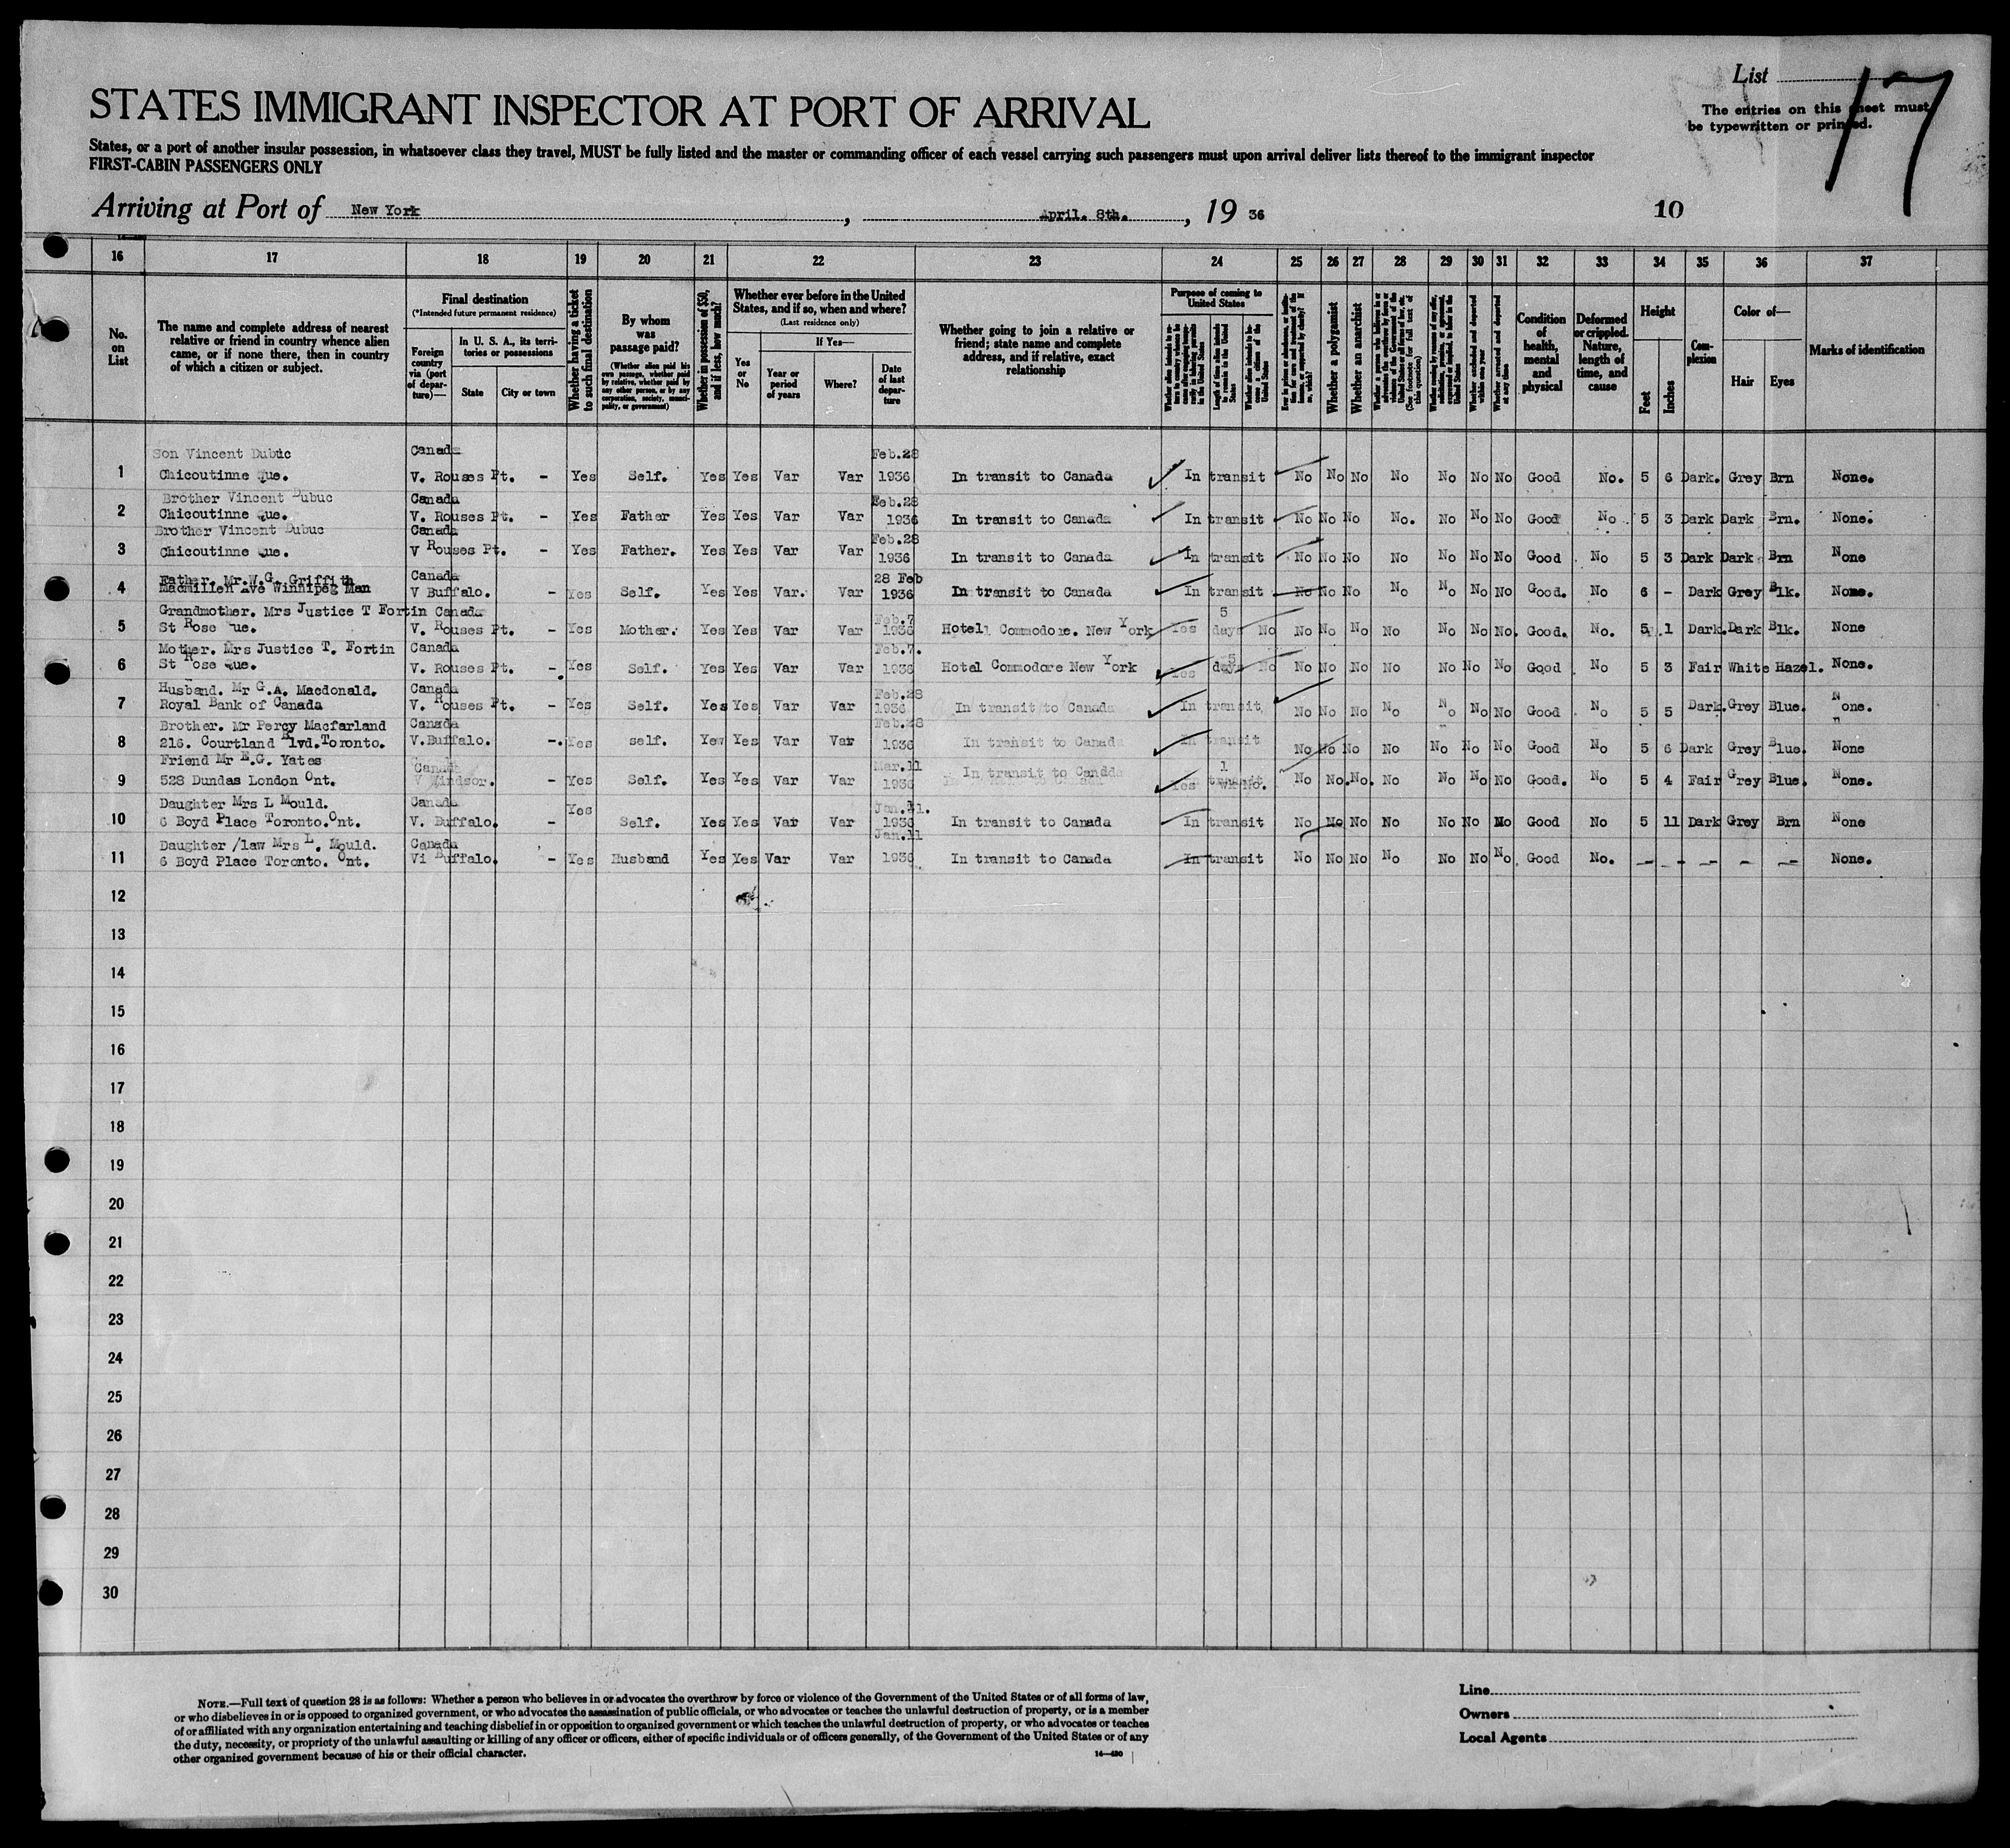 List
17
The entries on this sheet must
be typewritten or printed.
STATES IMMIGRANT INSPECTOR AT PORT OF ARRIVAL
States, or a port of another insular possession, in whatsoever class they travel, MUST be fully listed and the master or commanding officer of each vessel carrying such passengers must upon arrival deliver lists thereof to the immigrant inspector
FIRST-CABIN PASSENGERS ONLY
Arriving at Port of New York, April. 8th., 19 36
10
16 17 18 19 20 21 22 23 24 25 26 27 28 29 30 31 32 33 34 35 36 37
No. on List
The name and complete address of nearest relative or friend in country whence alien came, or if none there, then in country of which a citizen or subject.
Final destination
(*Intended future permanent residence)
Foreign country via (port of departure)—
In U. S. A., its territories or possessions
State
City or town
Whether having a ticket to such final destination
By whom was passage paid?
(Whether alien paid his own passage, whether paid by relative, whether paid by any other person, or by any corporation, society, municipality, or government)
Whether in possession of $50, and if less, how much?
Whether ever before in the United States, and if so, when and where?
(Last residence only)
Yes or No
If Yes—
Year or period of years
Where?
Date of last departure
Whether going to join a relative or friend; state name and complete address, and if relative, exact relationship
Purpose of coming to United States
Length of time alien intends to remain in the United States
Whether a polygamist
Whether an anarchist
(See footnote for full text of this question)
Whether arrested and deported at any time
Condition of health, mental and physical
Deformed or crippled. Nature, length of time, and cause
Height
Feet
Inches
Complexion
Color of—
Hair
Eyes
Marks of identification
Son Vincent Dubuc Canada Feb.28
1 Chicoutinne Que. V. Rouses Pt. - Yes Self. Yes Yes Var Var 1936 In transit to Canada In transit No No No No No No No Good No. 5 6 Dark. Grey Brn None.
Brother Vincent Dubuc Canada Feb.28
2 Chicoutinne Que. V. Rouses Pt. - Yes Father Yes Yes Var Var 1936 In transit to Canada In transit No No No No. No No No Good No 5 3 Dark Dark Brn. None.
Brother Vincent Dubuc Canada Feb.28
3 Chicoutinne Que. V Rouses Pt. - Yes Father. Yes Yes Var Var 1936 In transit to Canada In transit No No No No No No No Good No 5 3 Dark Dark Brn None
Father. Mr.W.G. Griffith Canada 28 Feb
4 Macmillen Ave Winnipeg Man V Buffalo. - Yes Self. Yes Yes Var. Var 1936 In transit to Canada In transit No No No No No No No Good. No 6 - Dark Grey Blk. None.
Grandmother. Mrs Justice T Fortin Canada Feb.7 5
5 St Rose Que. V. Rouses Pt. - Yes Mother. Yes Yes Var Var 1936 Hotell Commodore. New York Yes days No No No No No No No No. Good. No. 5 1 Dark. Dark Blk. None
Mother. Mrs Justice T. Fortin Canada Feb.7. 5
6 St Rose Que. V. Rouses Pt. - Yes Self. Yes Yes Var Var 1936 Hotel Commodore New York Yes days No No No No No No No No Good No 5 3 Fair White Hazel. None.
Husband. Mr G.A. Macdonald. Canada Feb.28
7 Royal Bank of Canada V. Rouses Pt. - Yes Self. Yes Yes Var Var 1936 In transit to Canada In transit No No No No No No No Good No 5 5 Dark. Grey Blue. None.
Brother. Mr Percy Macfarland Canada Feb.28
8 216. Courtland Blvd.Toronto. V.Buffalo. -. Yes self. Yew Yes Var Var 1936 In transit to Canada In transit No No No No No No No Good No 5 6 Dark Grey Blue. None
Friend Mr E.G. Yates Canada Mar.11 1
9 528 Dundas London Ont. V Windsor. - Yes Self. Yes Yes Var Var 1936 In transit to Candda Yes wk No. No No. No. No No No No Good. No 5 4 Fair Grey Blue. None.
Daughter Mrs L Mould. Canada Yes Jan.11.
10 6 Boyd Place Toronto.Ont. V. Buffalo. - Self. Yes Yes Var Var 1936 In transit to Canada In transit No No No No No No No Good No 5 11 Dark Grey Brn None
Daughter /law Mrs L. Mould. Canada Jan.11
11 6 Boyd Place Toronto. Ont. Vi Buffalo. - Yes Husband Yes Yes Var Var 1936 In transit to Canada In transit No No No No No No No Good No. - - - - - None.
12
13
14
15
16
17
18
19
20
21
22
23
24
25
26
27
28
29
30
NOTE.—Full text of question 28 is as follows: Whether a person who believes in or advocates the overthrow by force or violence of the Government of the United States or of all forms of law,
or who disbelieves in or is opposed to organized government, or who advocates the assassination of public officials, or who advocates or teaches the unlawful destruction of property, or is a member
of or affiliated with any organization entertaining and teaching disbelief in or opposition to organized government or which teaches the unlawful destruction of property, or who advocates or teaches
the duty, necessity, or propriety of the unlawful assaulting or killing of any officer or officers, either of specific individuals or of officers generally, of the Government of the United States or of any
other organized government because of his or their official character.
14—420
Line
Owners
Local Agents